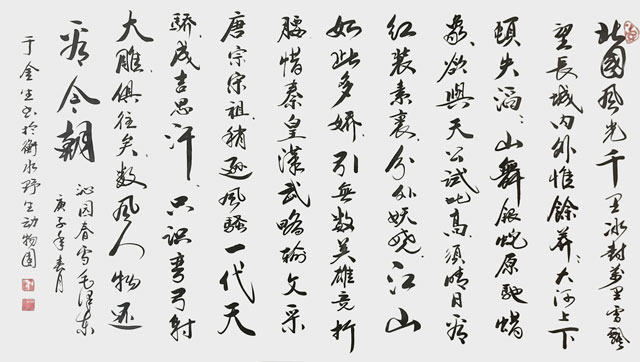 北國風光千里冰封萬里雪飄
望長城内外惟餘莽莽大河上下
頓失滔滔山舞銀蛇原馳蠟
象欲與天公試比高須晴日看
紅裝素裹分外妖嬈江山
如此多嬌引無數英雄竞折
腰惜秦皇漢武略輸文采
唐宗宋祖稍遜風騷一代天
驕成吉思汗只识彎弓射
大雕俱往矣数風人物还
看今朝
沁园春雪毛泽东
庚子年春月
于金生书於衡水野生动物园